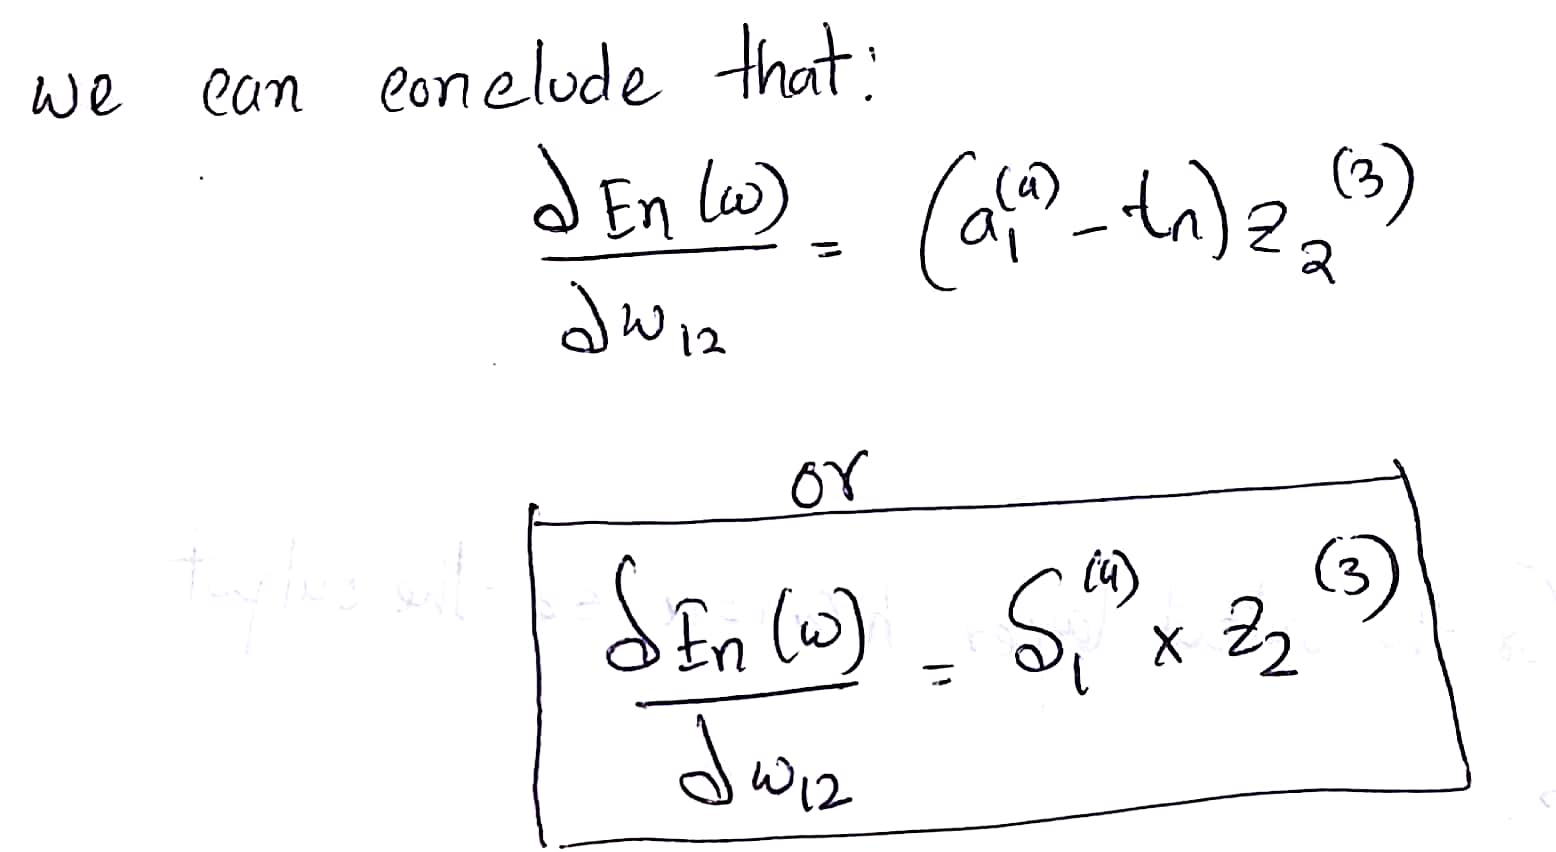 we can conclude that:
∂En(w)/∂w₁₂ = (a₁⁽⁴⁾ - tn) z₂⁽³⁾
or
∂En(w)/∂w₁₂ = δ₁⁽⁴⁾ × z₂⁽³⁾